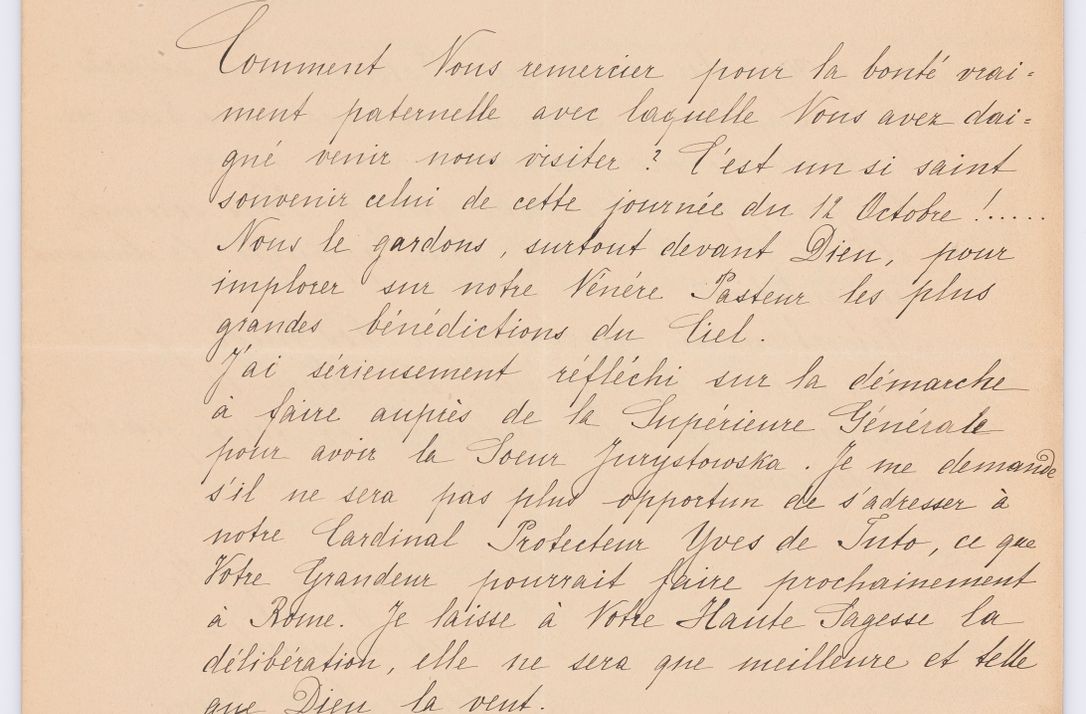 Comment Vous remercier pour la bonté vrai=
ment paternelle avec laquelle Vous avez dai=
gné venir nous visiter ? C'est un si saint
souvenir celui de cette journée du 12 Octobre !.....
Nous le gardons, surtout devant Dieu, pour
implorer sur notre Vénéré Pasteur les plus
grandes bénédictions du Ciel.
J'ai sérieusement réfléchi sur la démarche
à faire auprès de la Supérieure Générale
pour avoir la Soeur Jurystowska. Je me demande
s'il ne sera pas plus opportun de s'adresser à
notre Cardinal Protecteur Yves de Tuto, ce que
Votre Grandeur pourrait faire prochainement
à Rome. Je laisse à Votre Haute Sagesse la
délibération, elle ne sera que meilleure et telle
que Dieu la veut.